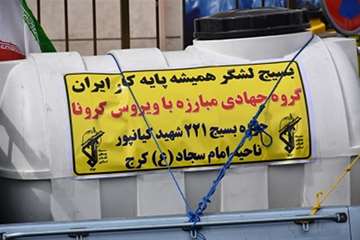 بسیج لشگر همیشه پایه کار ایران
گروه جهادی مبارزه با ویروس کرونا
حوزه بسیج ۲۲۱ شهید کیانپور
ناحیه امام سجاد (ع) کرج